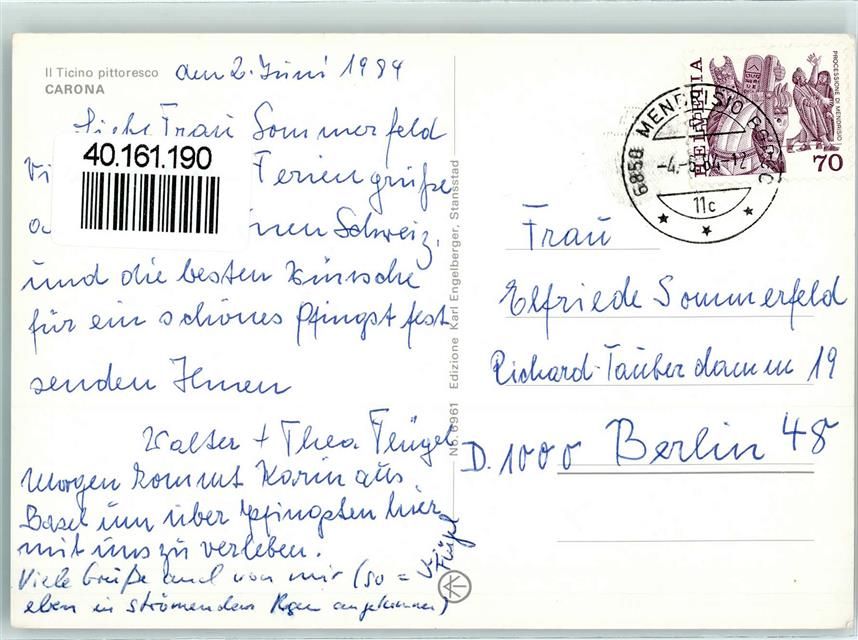 Il Ticino pittoresco
CARONA
den 2. Juni 1984
Liebe Frau Sommerfeld
Vi
Feriengrüße
a
nen Schweiz,
und die besten Wünsche
für ein schönes Pfingstfest
senden Ihnen
Walter + Thea Flügel
Morgen kommt Karin aus
Basel um über Pfingsten hier
mit uns zu verleben.
Viele Grüße auch von mir (so =
eben in strömendem Regen angekommen)
Flügel
40.161.190
No. 6961 Edizione Karl Engelberger, Stansstad
HELVETIA
PROCESSIONE DI MENDRISIO
70
6850 MENDRISIO BORGO
-4.-6.84-12
11c
Frau
Elfriede Sommerfeld
Richard-Tauberdamm 19
D. 1000 Berlin 48